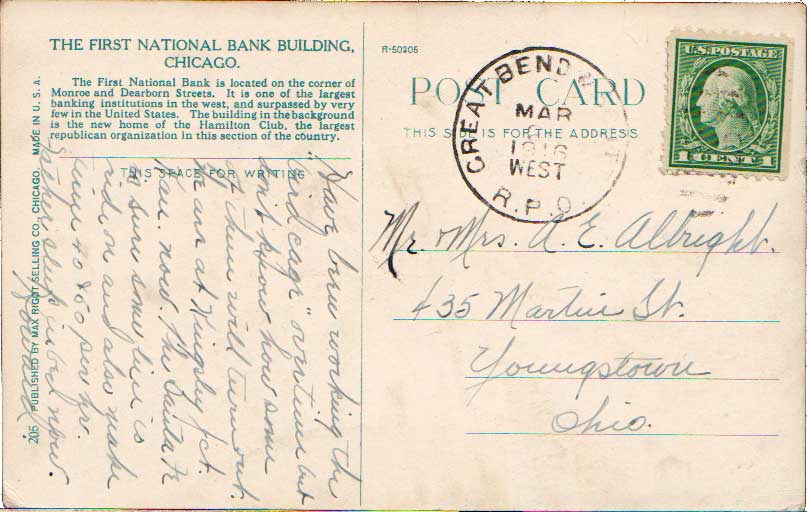 THE FIRST NATIONAL BANK BUILDING,
CHICAGO.
The First National Bank is located on the corner of
Monroe and Dearborn Streets. It is one of the largest
banking institutions in the west, and surpassed by very
few in the United States. The building in the background
is the new home of the Hamilton Club, the largest
republican organization in this section of the country.
THIS SPACE FOR WRITING
Have been working the
"bird cage" overtime but
don't know how some
of them will turn out.
We are at Kingsley Jct.
Kan. now. The Santa Fe
is sure some line
ride on and also make
40 & 50 per hr.
sleep in bed now.
Howard.
205 PUBLISHED BY MAX RIGOT SELLING CO., CHICAGO. MADE IN U. S. A.
R-50205
POST CARD
THIS SIDE IS FOR THE ADDRESS
GREAT BEND
MAR
1916
WEST
R.P.O.
U.S. POSTAGE
1 CENT 1
Mr. & Mrs. A. E. Albright.
435 Martin St.
Youngstown
Ohio.